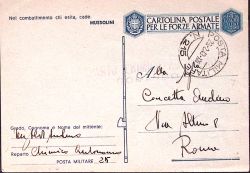 Nel combattimento chi esita, cade
MUSSOLINI
CARTOLINA POSTALE
PER LE FORZE ARMATE
POSTA MILITARE
N. 25
Alla
Concetta
Via
Roma
Grado, Cognome e Nome del mittente:
Reparto Chimico
POSTA MILITARE 25